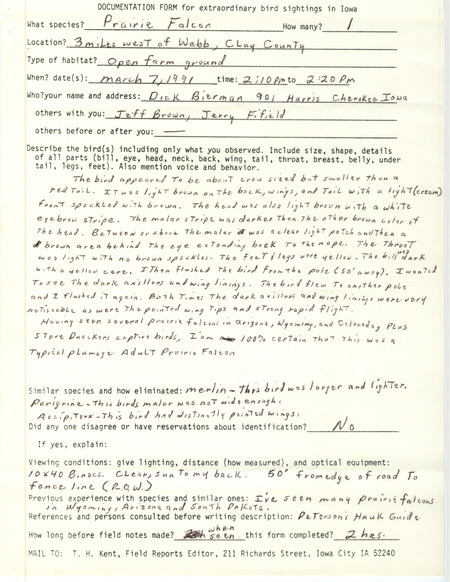 DOCUMENTATION FORM for extraordinary bird sightings in Iowa
What species? Prairie Falcon How many? 1
Location? 3 miles west of Webb, Clay County
Type of habitat? Open farm ground
When? date(s): march 7, 1991 time: 2:10 pm to 2:20 pm
Who? your name and address: Dick Bierman 901 Harris Cherokee Iowa
others with you: Jeff Brown, Jerry Fifield
others before or after you: —
Describe the bird(s) including only what you observed. Include size, shape, details
of all parts (bill, eye, head, neck, back, wing, tail, throat, breast, belly, under
tail, legs, feet). Also mention voice and behavior.
The bird appeared to be about crow sized but smaller than a
red tail. It was light brown on the back, wings, and tail with a light (cream)
front speckled with brown. The head was also light brown with a white
eyebrow stripe. The malar stripe was darker than the other brown color of
the head. Between or above the malar was a clear light patch and then a
brown area behind the eye extending back to the nape. The Throat
was light with no brown speckles. The feet & legs were yellow. The bill was dark
with a yellow cere. I then flushed the bird from the pole (50' away). I wanted
To see the dark axillars and wing linings. The bird flew to another pole
and I flushed it again. Both Times the dark axillars and wing linings were very
noticeable as were the pointed wing tips and strong rapid flight.
Having seen several prairie falcons in Arizona, Wyoming, and Colorado, plus
Steve Dueckers captive birds, I'm 100% certain that this was a
Typical plumage Adult Prairie Falcon
Similar species and how eliminated: merlin - This bird was larger and lighter.
Perigrine - This birds malar was not wide enough.
Accipiters - This bird had distinctly pointed wings.
Did any one disagree or have reservations about identification? No
If yes, explain:
Viewing conditions: give lighting, distance (how measured), and optical equipment:
10x40 Binocs. Clear, sun to my back. 50' from edge of road To
fence line (R.O.W.)
Previous experience with species and similar ones: I've seen many prairie falcons
in Wyoming, Arizona and South Dakota.
References and persons consulted before writing description: Peterson's Hawk Guide
How long before field notes made? when seen this form completed? 2 hrs.
MAIL TO: T. H. Kent, Field Reports Editor, 211 Richards Street, Iowa City IA 52240